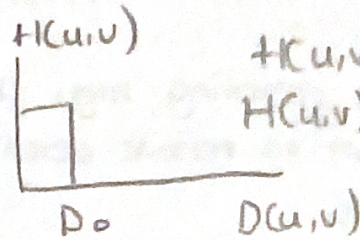 H(u,v)
H(u,v
H(u,v)
Do
D(u,v)